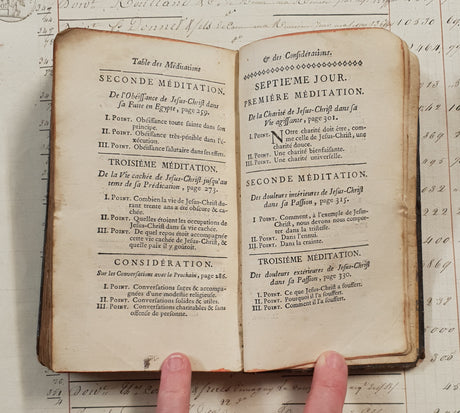 Table des Méditations
SECONDE MÉDITATION.
De l'Obéissance de Jesus-Christ dans
sa Fuite en Egypte, page 259.
I. POINT. Obéissance toute sainte dans son
principe.
II. POINT. Obéissance très-pénible dans l'é-
xécution.
III. POINT. Obéissance salutaire dans ses effets.
TROISIÈME MÉDITATION.
De la Vie cachée de Jesus-Christ jusqu'au
tems de sa Prédication, page 273.
I. POINT. Combien la vie de Jesus-Christ du-
rant trente ans a été obscure & ca-
chée.
II. POINT. Quelles étoient les occupations de
Jesus-Christ dans sa vie cachée.
III. POINT. De quel repos étoit accompagnée
cette vie cachée de Jesus-Christ, &
quelle paix il y goûtoit.
CONSIDÉRATION.
Sur les Conversations avec le Prochain, page 286.
I. POINT. Conversations sages & accompa-
gnées d'une modestie religieuse.
II. POINT. Conversations solides & utiles.
III. POINT. Conversations charitables & sans
offense de personne.
& des Considérations.
SEPTIE'ME JOUR.
PREMIÈRE MÉDITATION.
De la Charité de Jesus-Christ dans sa
Vie agissante, page 301.
I. POINT. NOtre charité doit être, com-
me celle de Jesus-Christ,
une charité douce.
II. POINT. Une charité bienfaisante.
III. POINT. Une charité universelle.
SECONDE MÉDITATION.
Des douleurs intérieures de Jesus-Christ
dans sa Passion, page 315.
I. POINT. Comment, à l'exemple de Jesus-
Christ, nous devons nous compor-
ter dans la tristesse.
II. POINT. Dans l'ennui.
III. POINT. Dans la crainte.
TROISIÈME MÉDITATION.
Des douleurs extérieures de Jesus-Christ
dans sa Passion, page 330.
I. POINT. Ce que Jesus-Christ a souffert.
II. POINT. Pourquoi il l'a souffert.
III. POINT. Comment il l'a souffert.